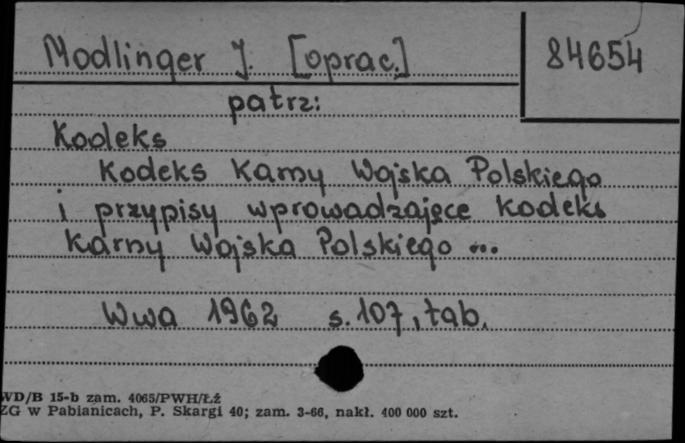 Modlinger J. [oprac.]
84654
patrz:
Kodeks
Kodeks Karny Wojska Polskiego
i przypisy wprowadzające kodeks
Karny Wojska Polskiego ...
Wwa 1962 s. 107, tab.
WD/B 15-b zam. 4065/PWH/Łź
ZG w Pabianicach, P. Skargi 40; zam. 3-66, nakł. 400 000 szt.